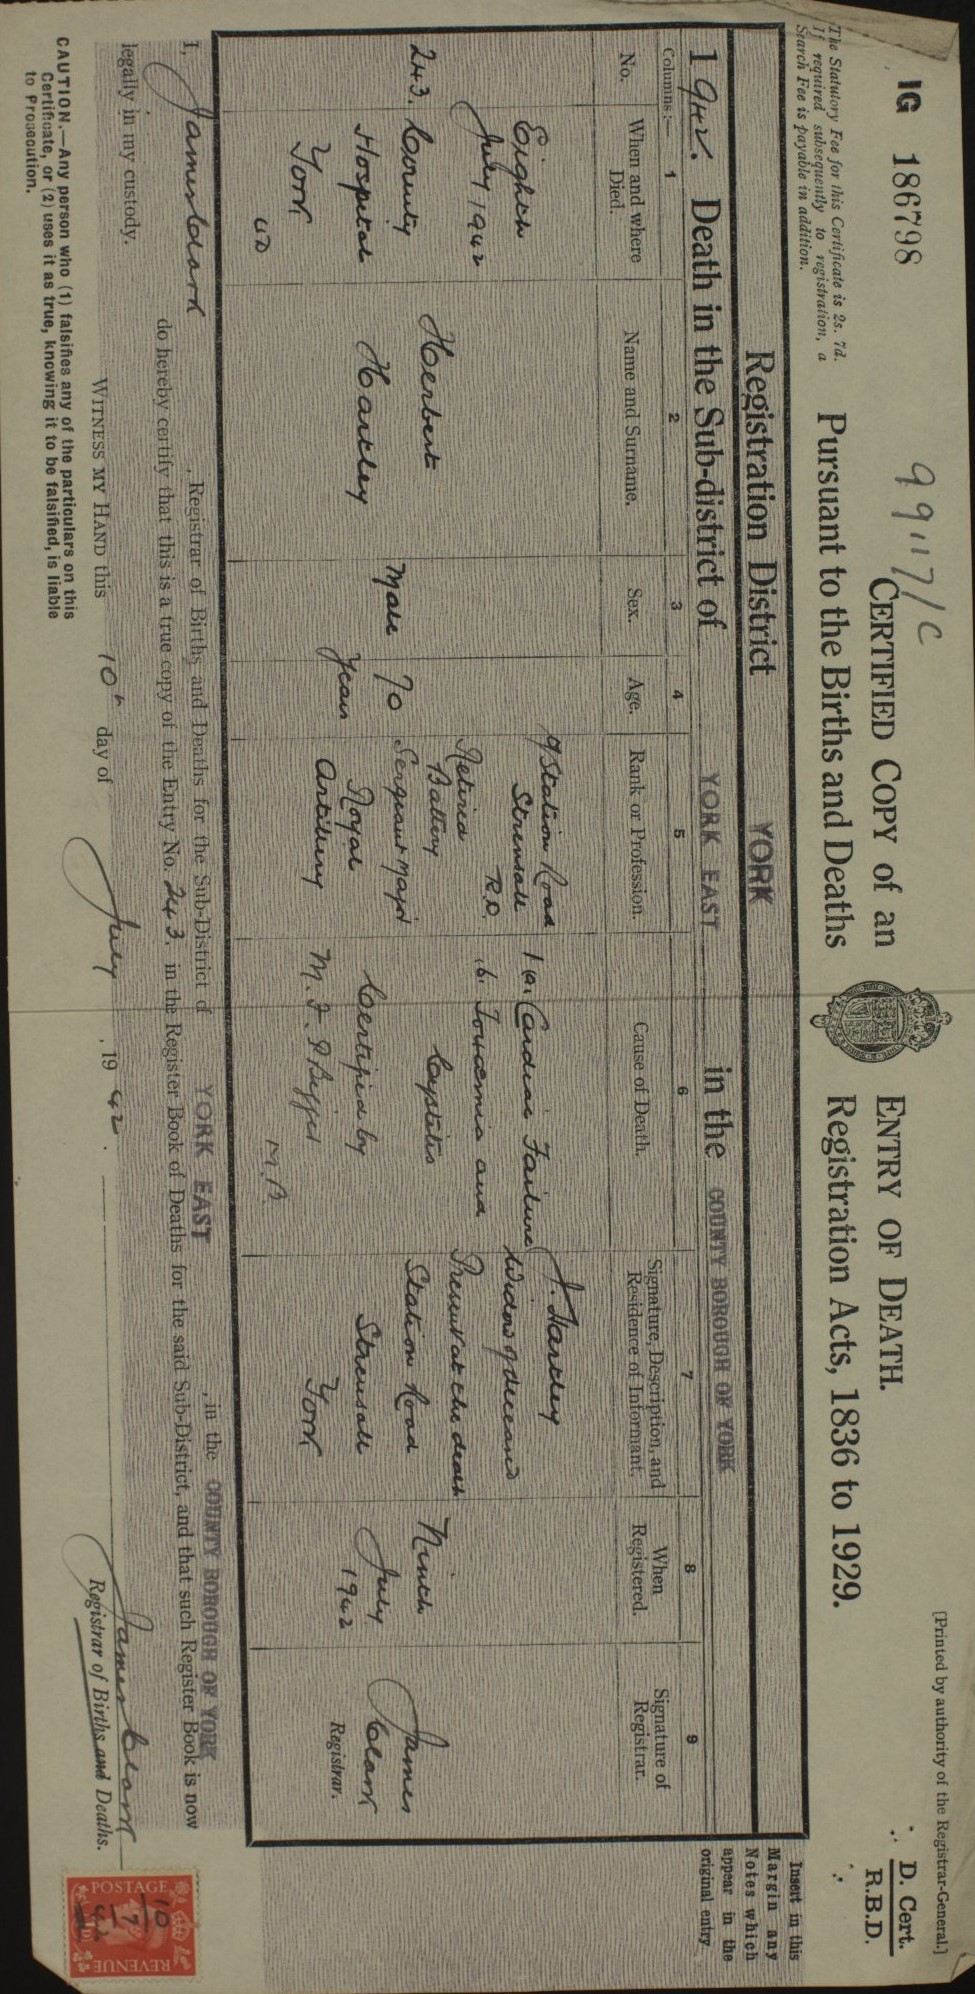 IG 186798
9917/C
[Printed by authority of the Registrar-General.]
D. Cert.
R.B.D.
CERTIFIED COPY of an ENTRY OF DEATH.
The Statutory Fee for this Certificate is 2s. 7d.
If required subsequently to registration, a
Search Fee is payable in addition.
Pursuant to the Births and Deaths Registration Acts, 1836 to 1929.
Registration District YORK
1942. Death in the Sub-district of YORK EAST in the COUNTY BOROUGH OF YORK
Columns:— 1 2 3 4 5 6 7 8 9
No.
When and where
Died.
Name and Surname.
Sex.
Age.
Rank or Profession.
Cause of Death.
Signature, Description, and
Residence of Informant.
When
Registered.
Signature of
Registrar.
243.
Eighth
July 1942
County
Hospital
York
UD
Herbert
Hartley
Male
70
Years
of Station Road
Strensall
R.D.
Retired
Battery
Sergeant Major
Royal
Artillery
1 (a). Cardiac Failure
.b. Toxaemia and
Cystitis
Certified by
J. Hartley
Widow of deceased
Present at the death
Station Road
Strensall
York
Ninth
July
1942
James
Clark
Registrar.
Insert in this
Margin any
Notes which
appear in the
original entry.
I, James Clark, Registrar of Births and Deaths for the Sub-District of YORK EAST, in the COUNTY BOROUGH OF YORK
do hereby certify that this is a true copy of the Entry No. 243. in the Register Book of Deaths for the said Sub-District, and that such Register Book is now
legally in my custody.
WITNESS MY HAND this 10th day of July, 1942.
James Clark
Registrar of Births and Deaths.
CAUTION.—Any person who (1) falsifies any of the particulars on this
Certificate, or (2) uses it as true, knowing it to be falsified, is liable
to Prosecution.
POSTAGE
REVENUE
10
7
42